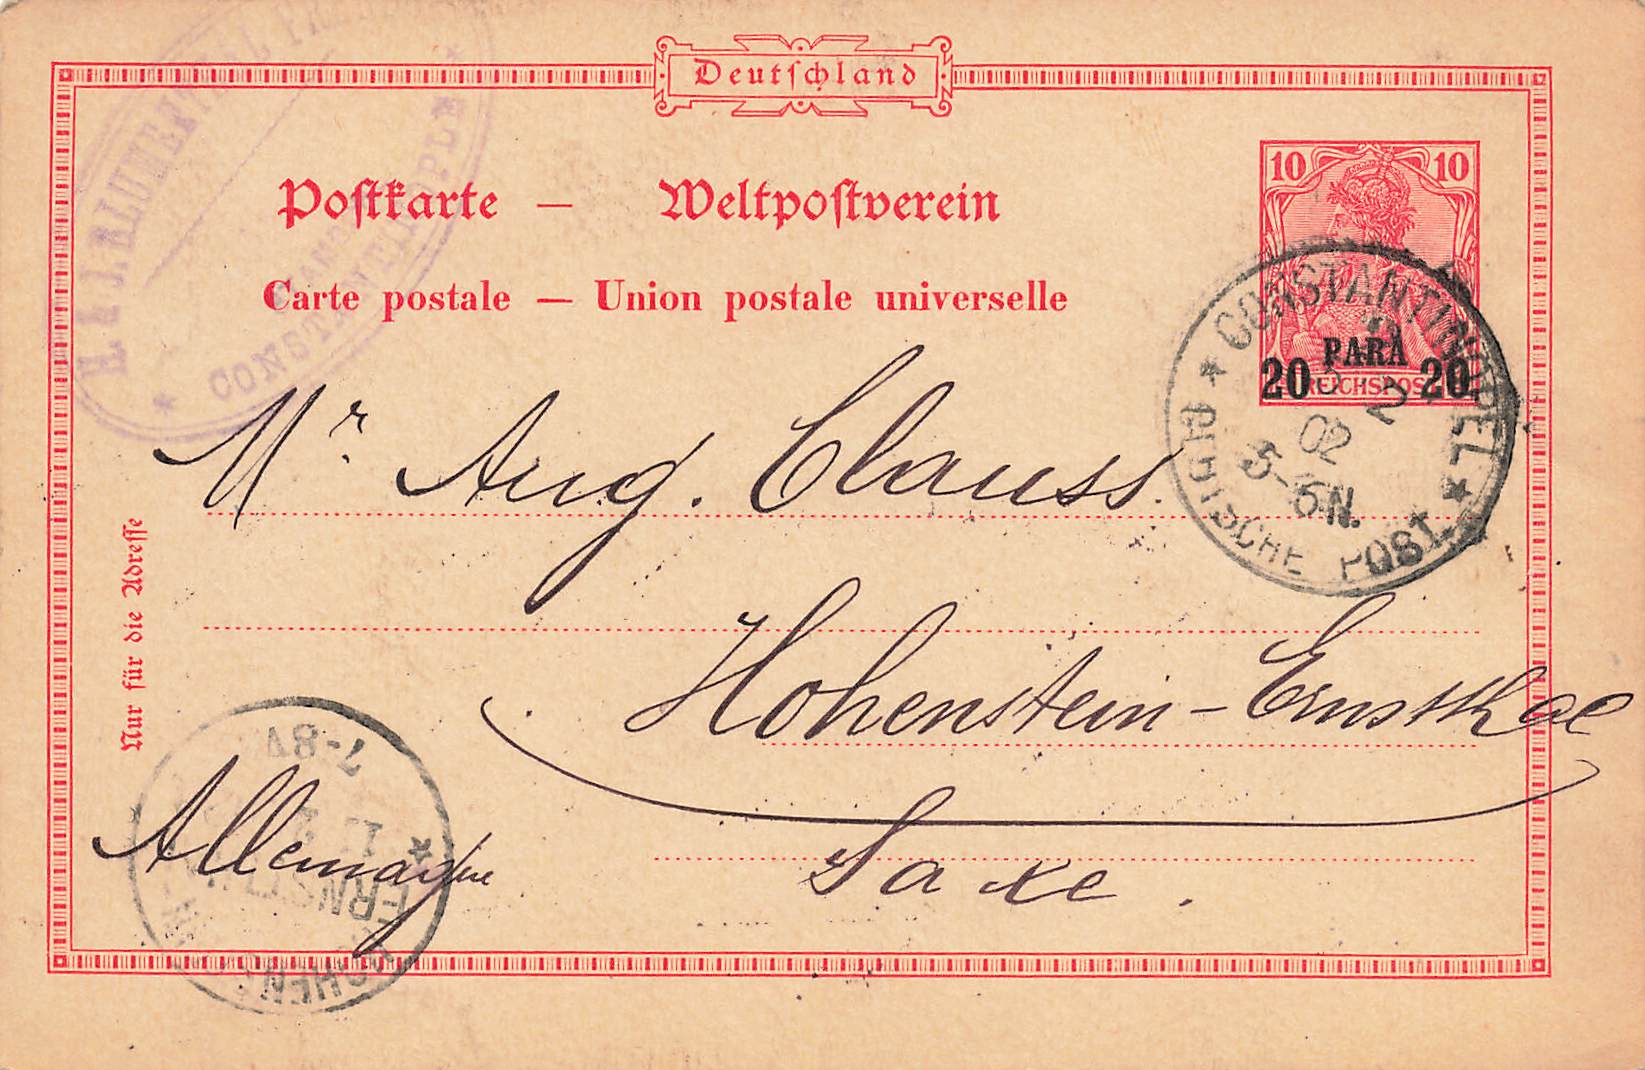 Deutschland
H. & J. BLUMENTHAL
CONSTANTINOPLE
Postkarte — Weltpostverein
Carte postale — Union postale universelle
10 10
20 PARA 20
REICHSPOST
CONSTANTINOPEL
2
02
5-6N.
DEUTSCHE POST
Mr Aug. Clauss.
Hohenstein-Ernstthal
Saxe.
Allemagne
Nur für die Adresse
7-8V
HOHENSTEIN-
ERNSTTHAL